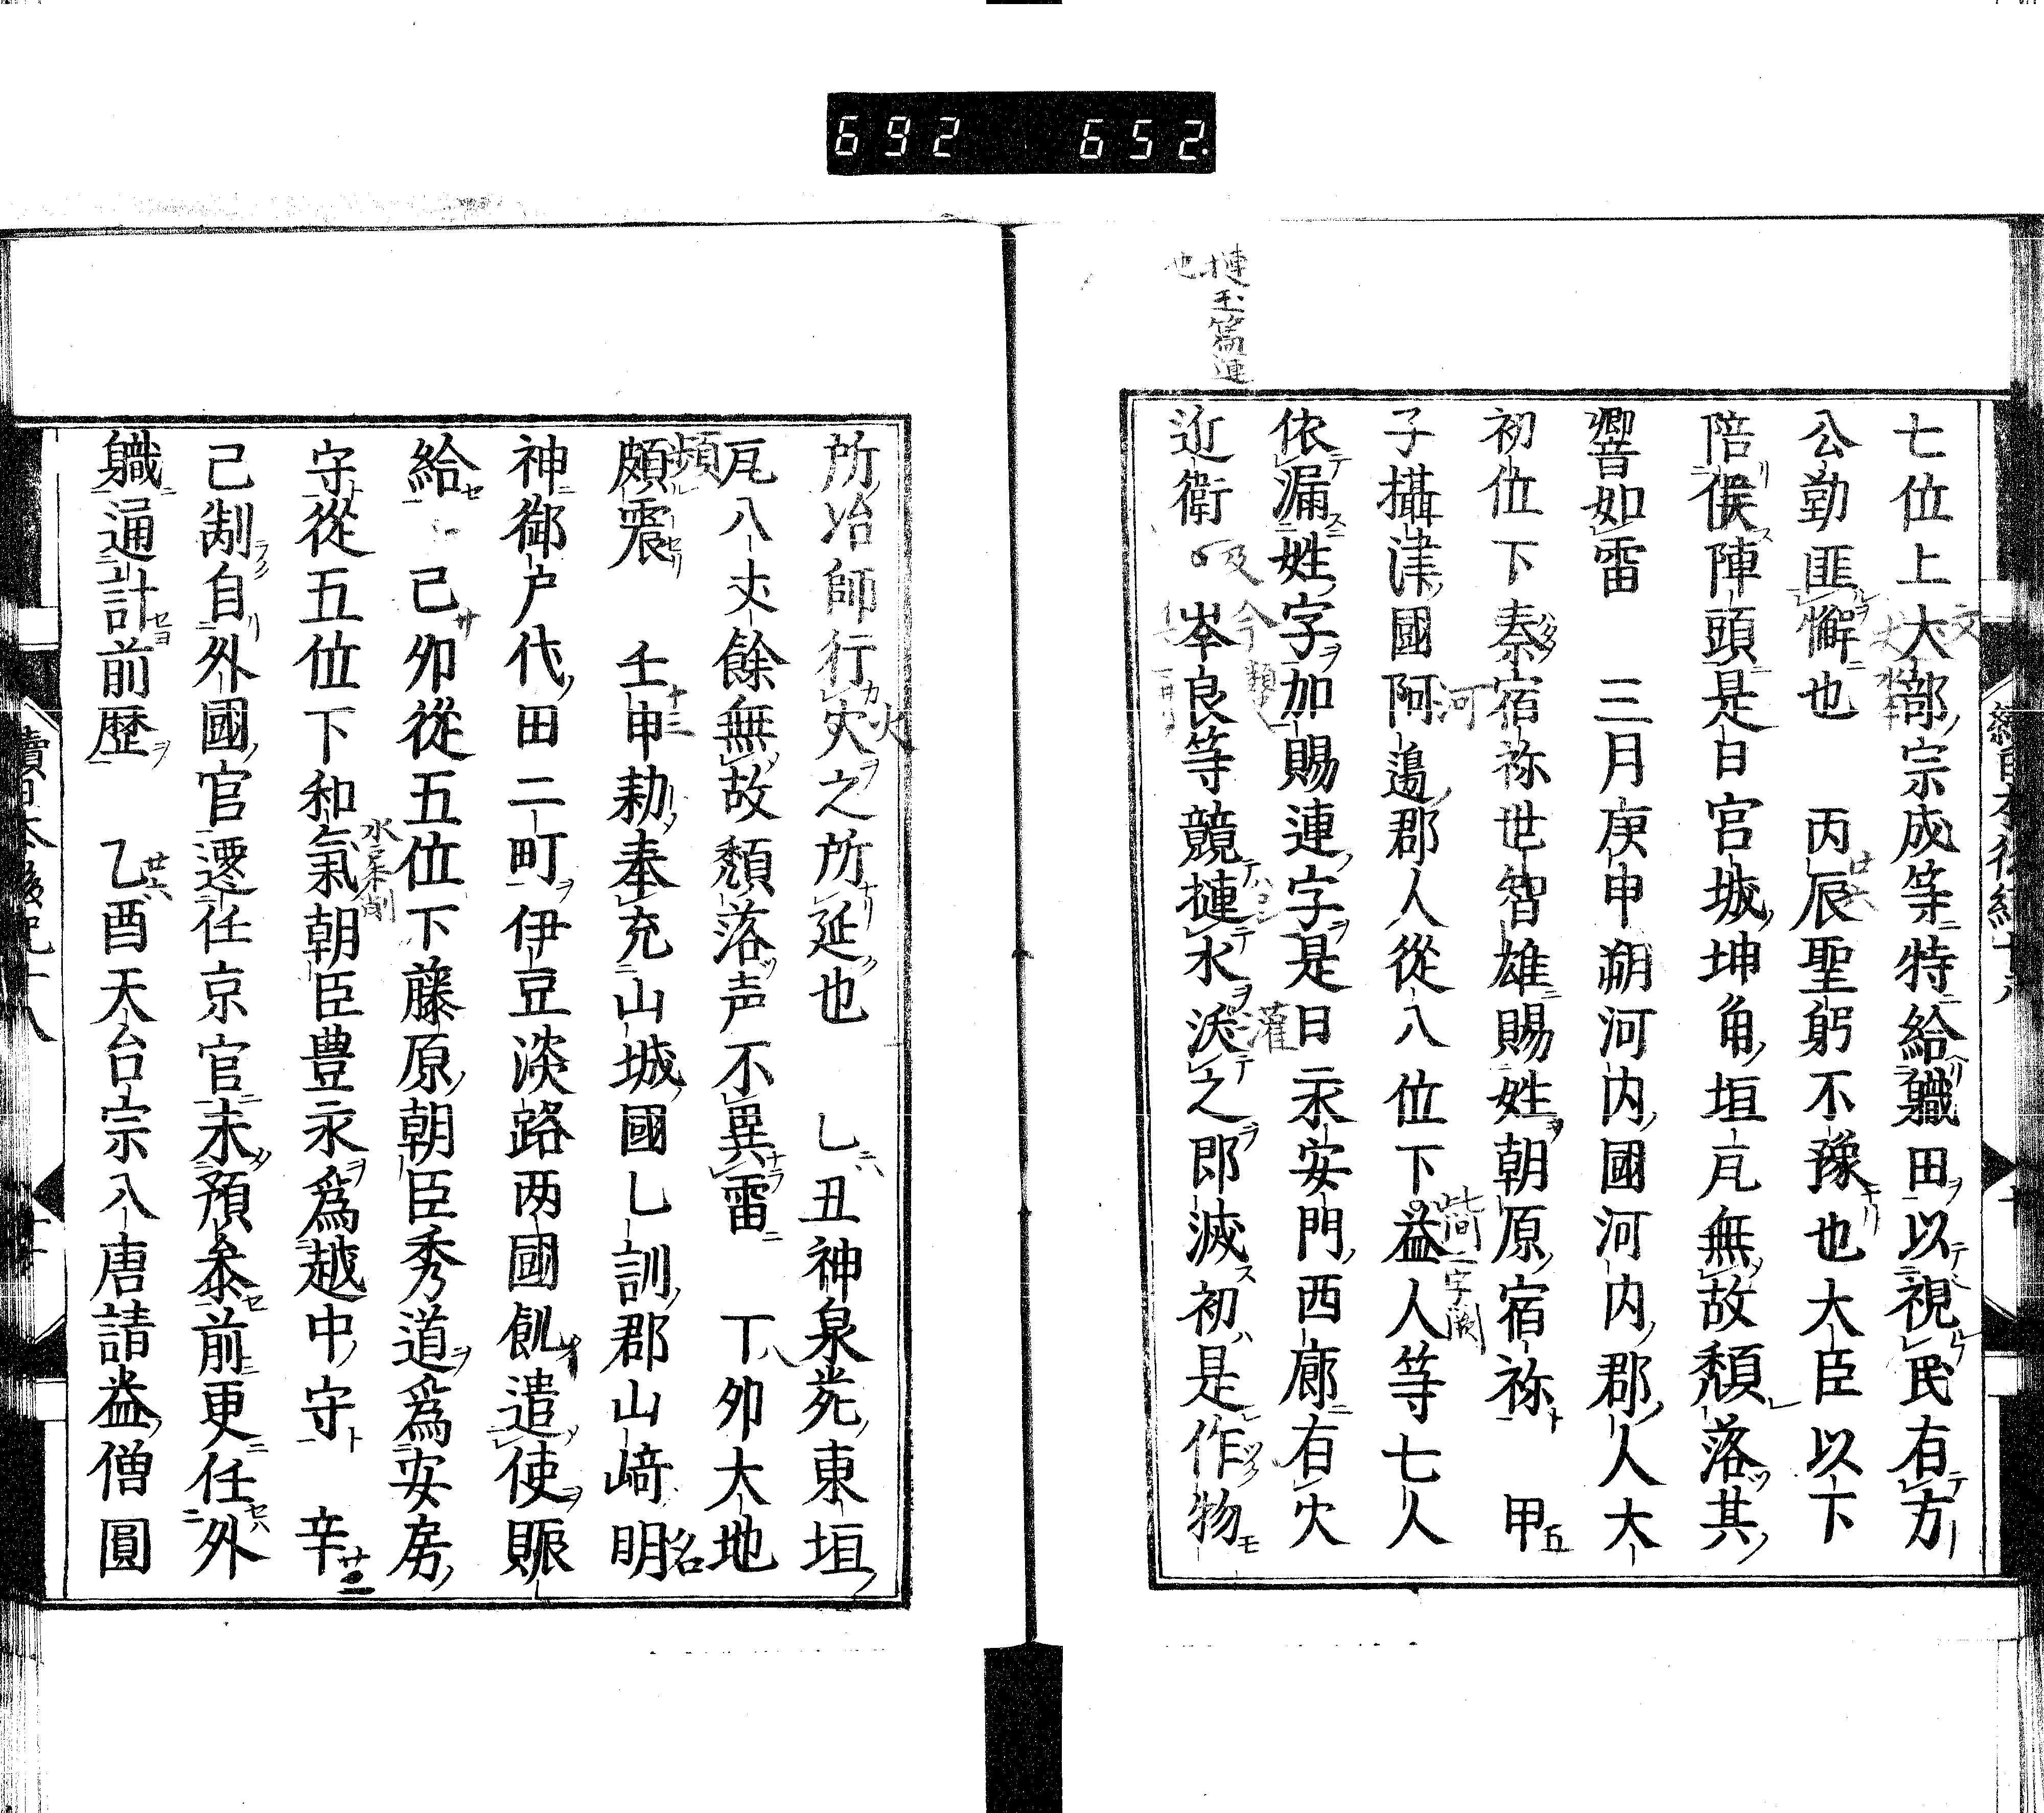 692 652
七位上大部宗成等特給軄田以視民有方
公勤匪懈也 丙辰聖躬不豫也大臣以下
陪候陣頭是日宮城坤角垣瓦無故頽落其
響如雷 三月庚申朔河内國河内郡人大
初位下秦宿祢世智雄賜姓朝原宿祢 甲
子攝津國阿邊郡人從八位下益人等七人
依漏姓字加賜連字是日永安門西廊有火
近衛 岑良等競摙水沃之即滅初是作物
所冶師行火之所延也 乙丑神泉苑東垣
瓦八丈餘無故頽落声不異雷 丁卯大地
頗震 壬申勑奉充山城國乙訓郡山﨑明
神御戸代田二町伊豆淡路两國飢遣使賑
給 己卯從五位下藤原朝臣秀道爲安房
守從五位下和氣朝臣豊永爲越中守 辛
己制自外國官遷任京官未預叅前更任外
軄通計前歴 乙酉天台宗入唐請益僧圓
摙玉篇連
也